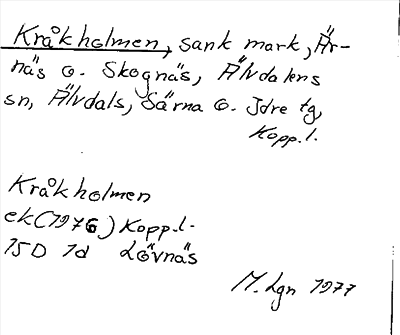 Kråkholmen, sank mark, Är-
näs o. Skognäs, Älvdalens
sn, Älvdals, Särna o. Idre tg,
Kopp.l.
Kråkholmen
ek (1976) Kopp.l.
15D 1d Lövnäs
M. Lgn 1977